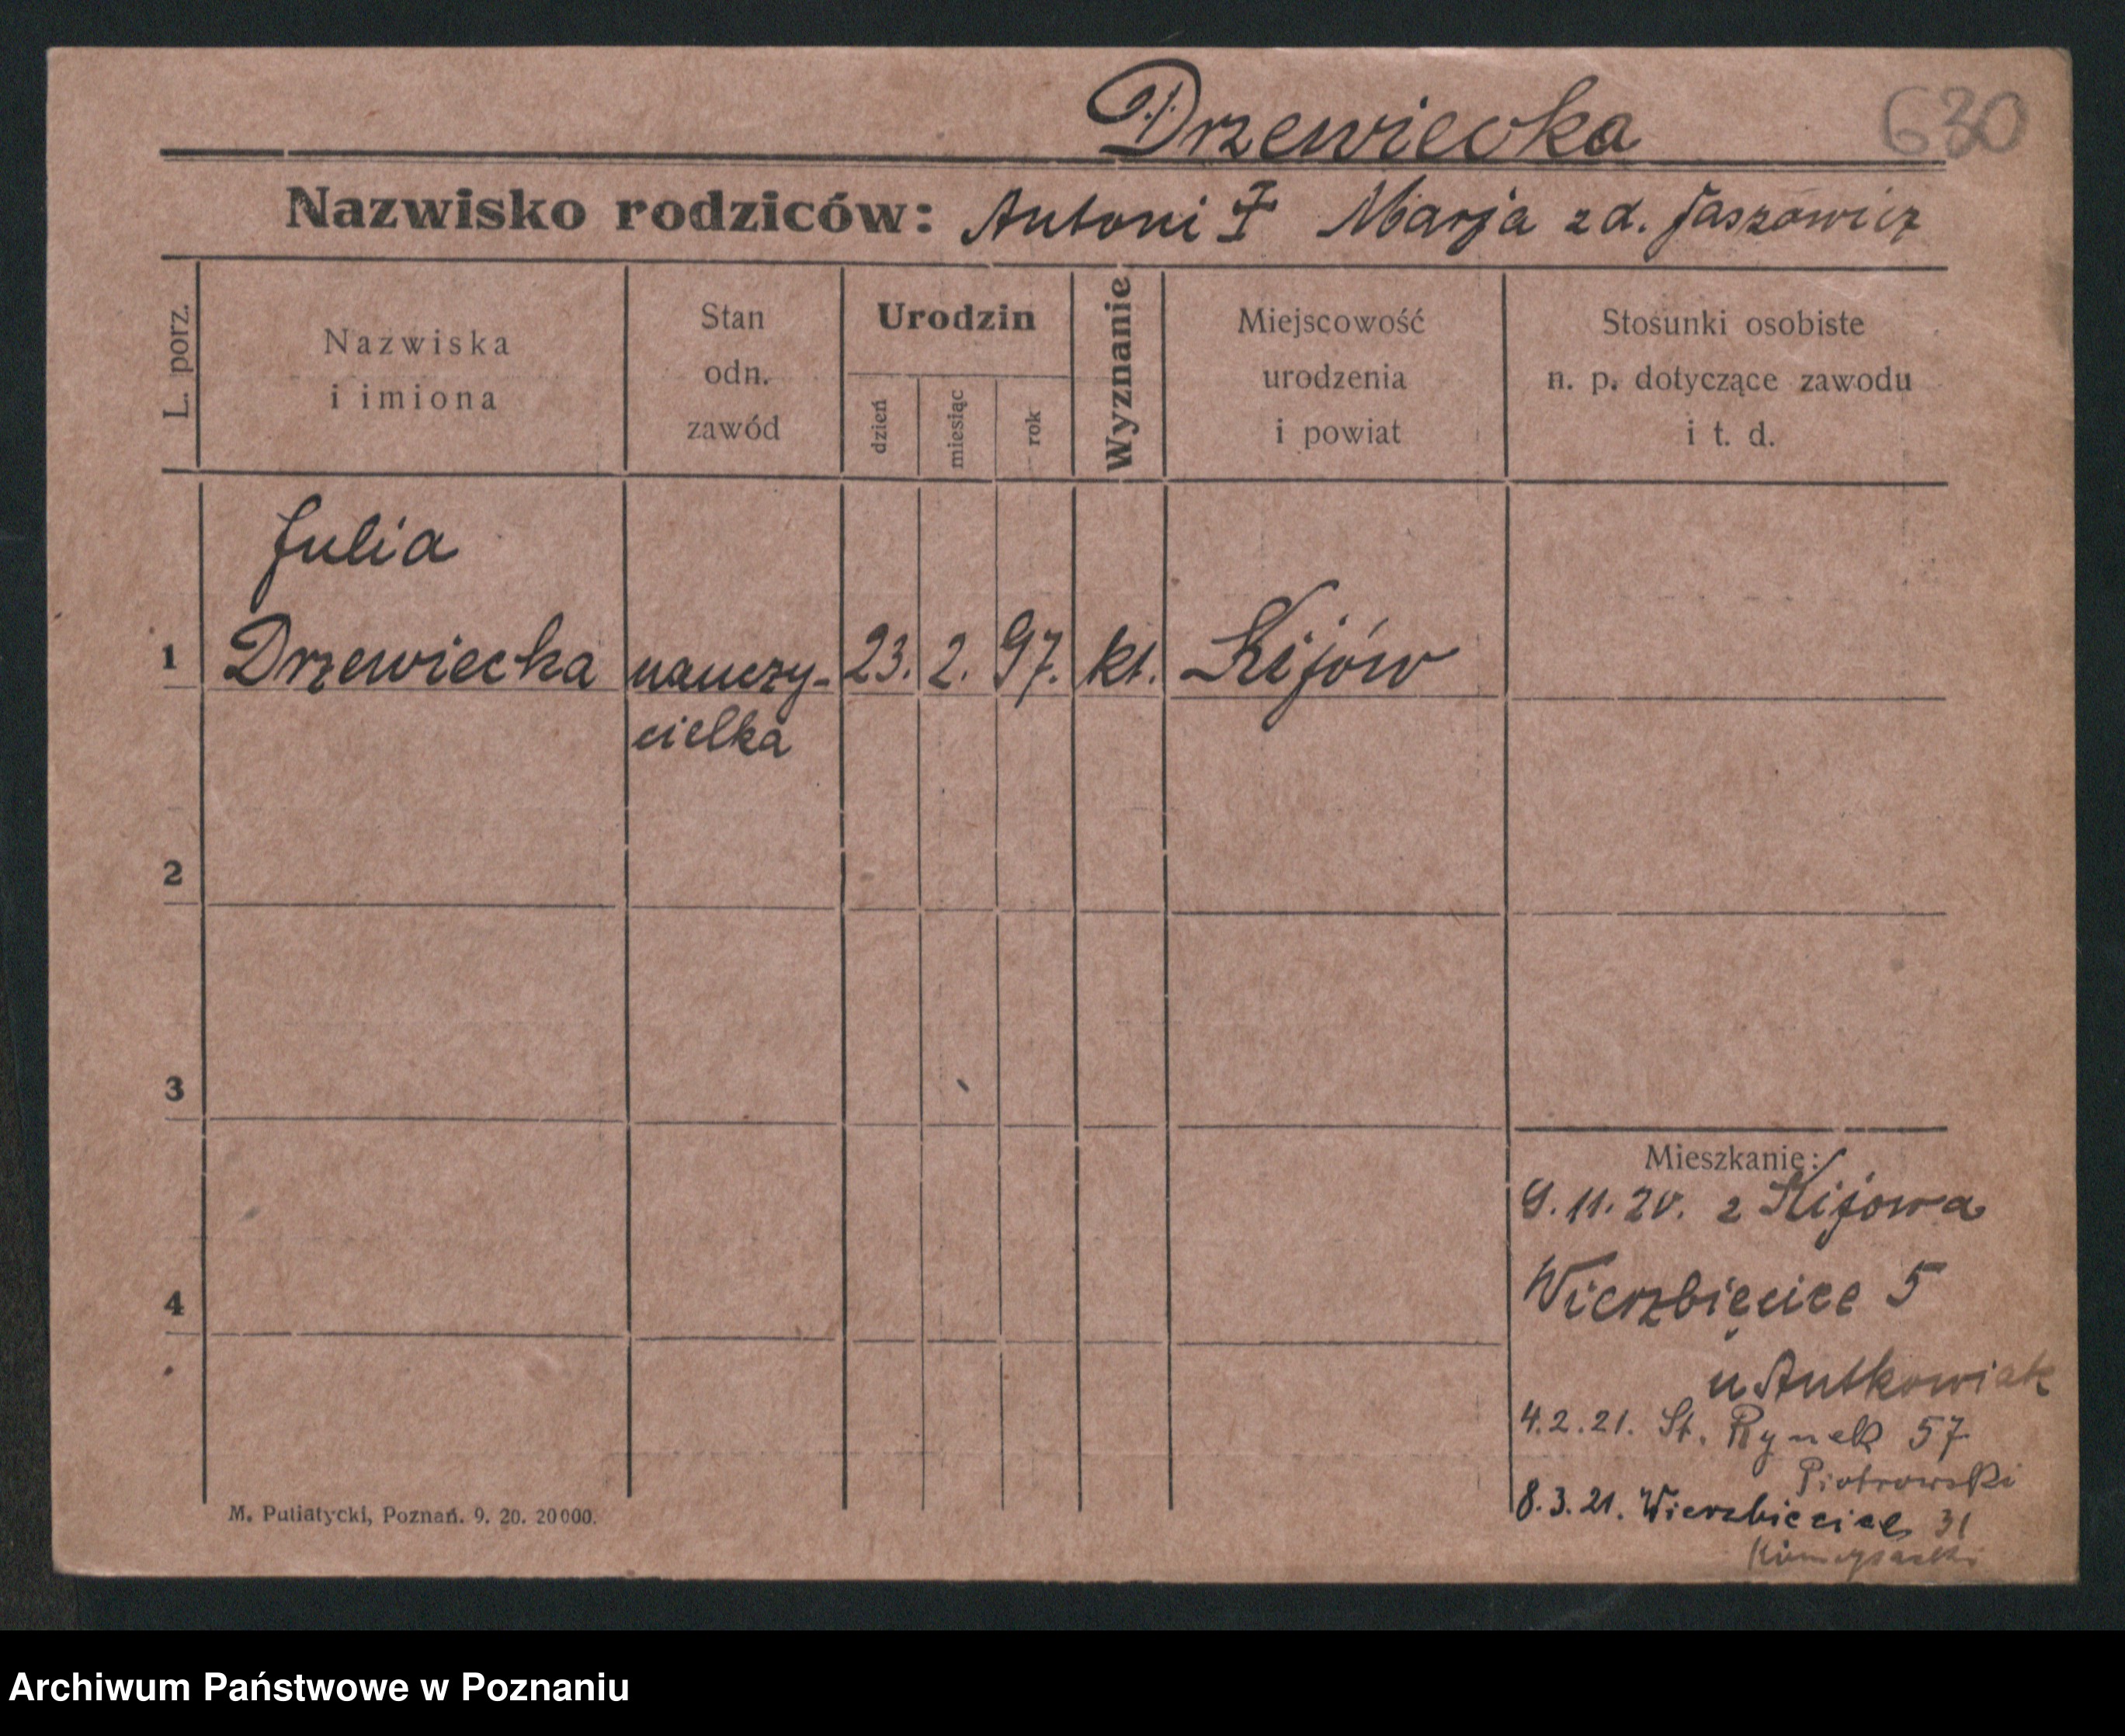 Drzewiecka 630
Nazwisko rodziców: Antoni I Marja zd. Jaszowicz
L. porz.
Nazwiska
i imiona
Stan
odn.
zawód
Urodzin
dzień
miesiąc
rok
Wyznanie
Miejscowość
urodzenia
i powiat
Stosunki osobiste
n. p. dotyczące zawodu
i t. d.
Julia
1 Drzewiecka nauczy- 23. 2. 97. kt. Kijów
cielka
2
3
4
Mieszkanie:
9.11.20. z Kijowa
Wierzbięcice 5
u Antkowiak
4.2.21. St. Rynek 57
Piotrowski
8.3.21. Wierzbięcice 31
M. Putiatycki, Poznań. 9. 20. 20000.
Archiwum Państwowe w Poznaniu